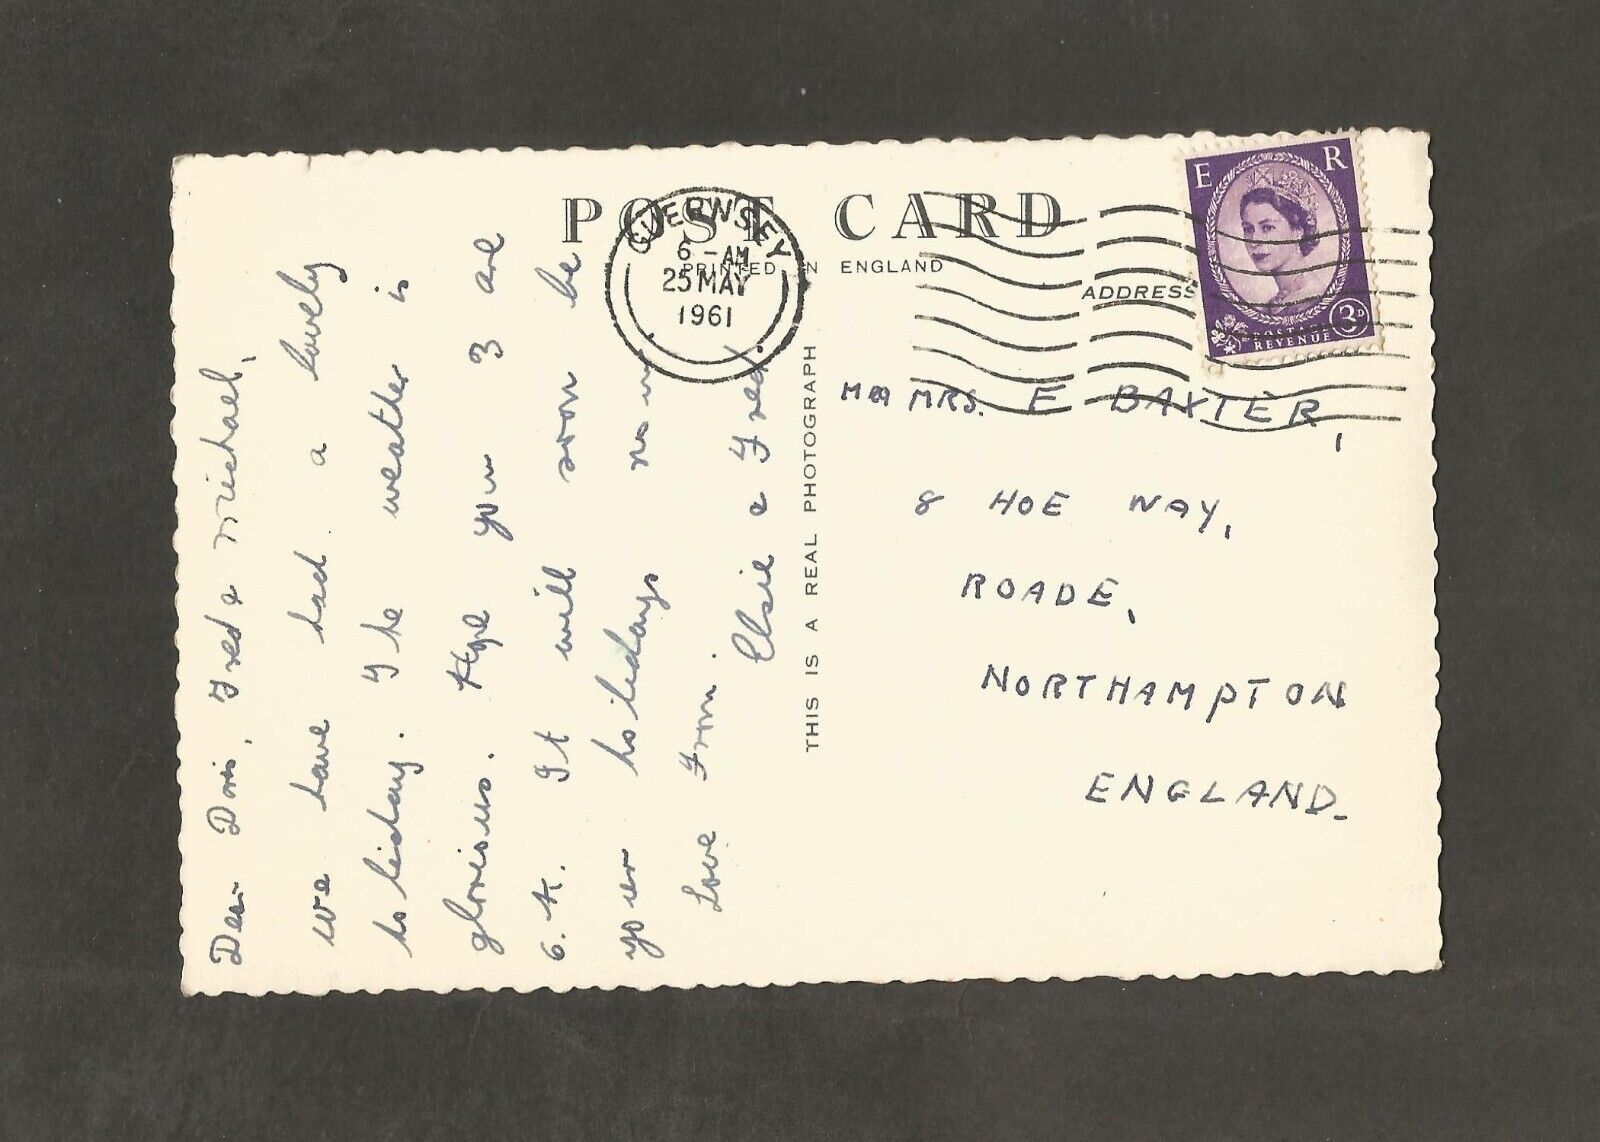 POST CARD
PRINTED IN ENGLAND
ADDRESS
GUERNSEY
6 - AM
25 MAY
1961
E R
POSTAGE
REVENUE
3D
Dear Doris, Fred & Michael,
we have had a lovely
holiday. The weather is
glorious. Hope you 3 are
O.K. It will soon be
your holidays now
Love From.
Elsie & Fred.
THIS IS A REAL PHOTOGRAPH
MRS. E BAXTER,
8 HOE WAY,
ROADE,
NORTHAMPTON
ENGLAND.